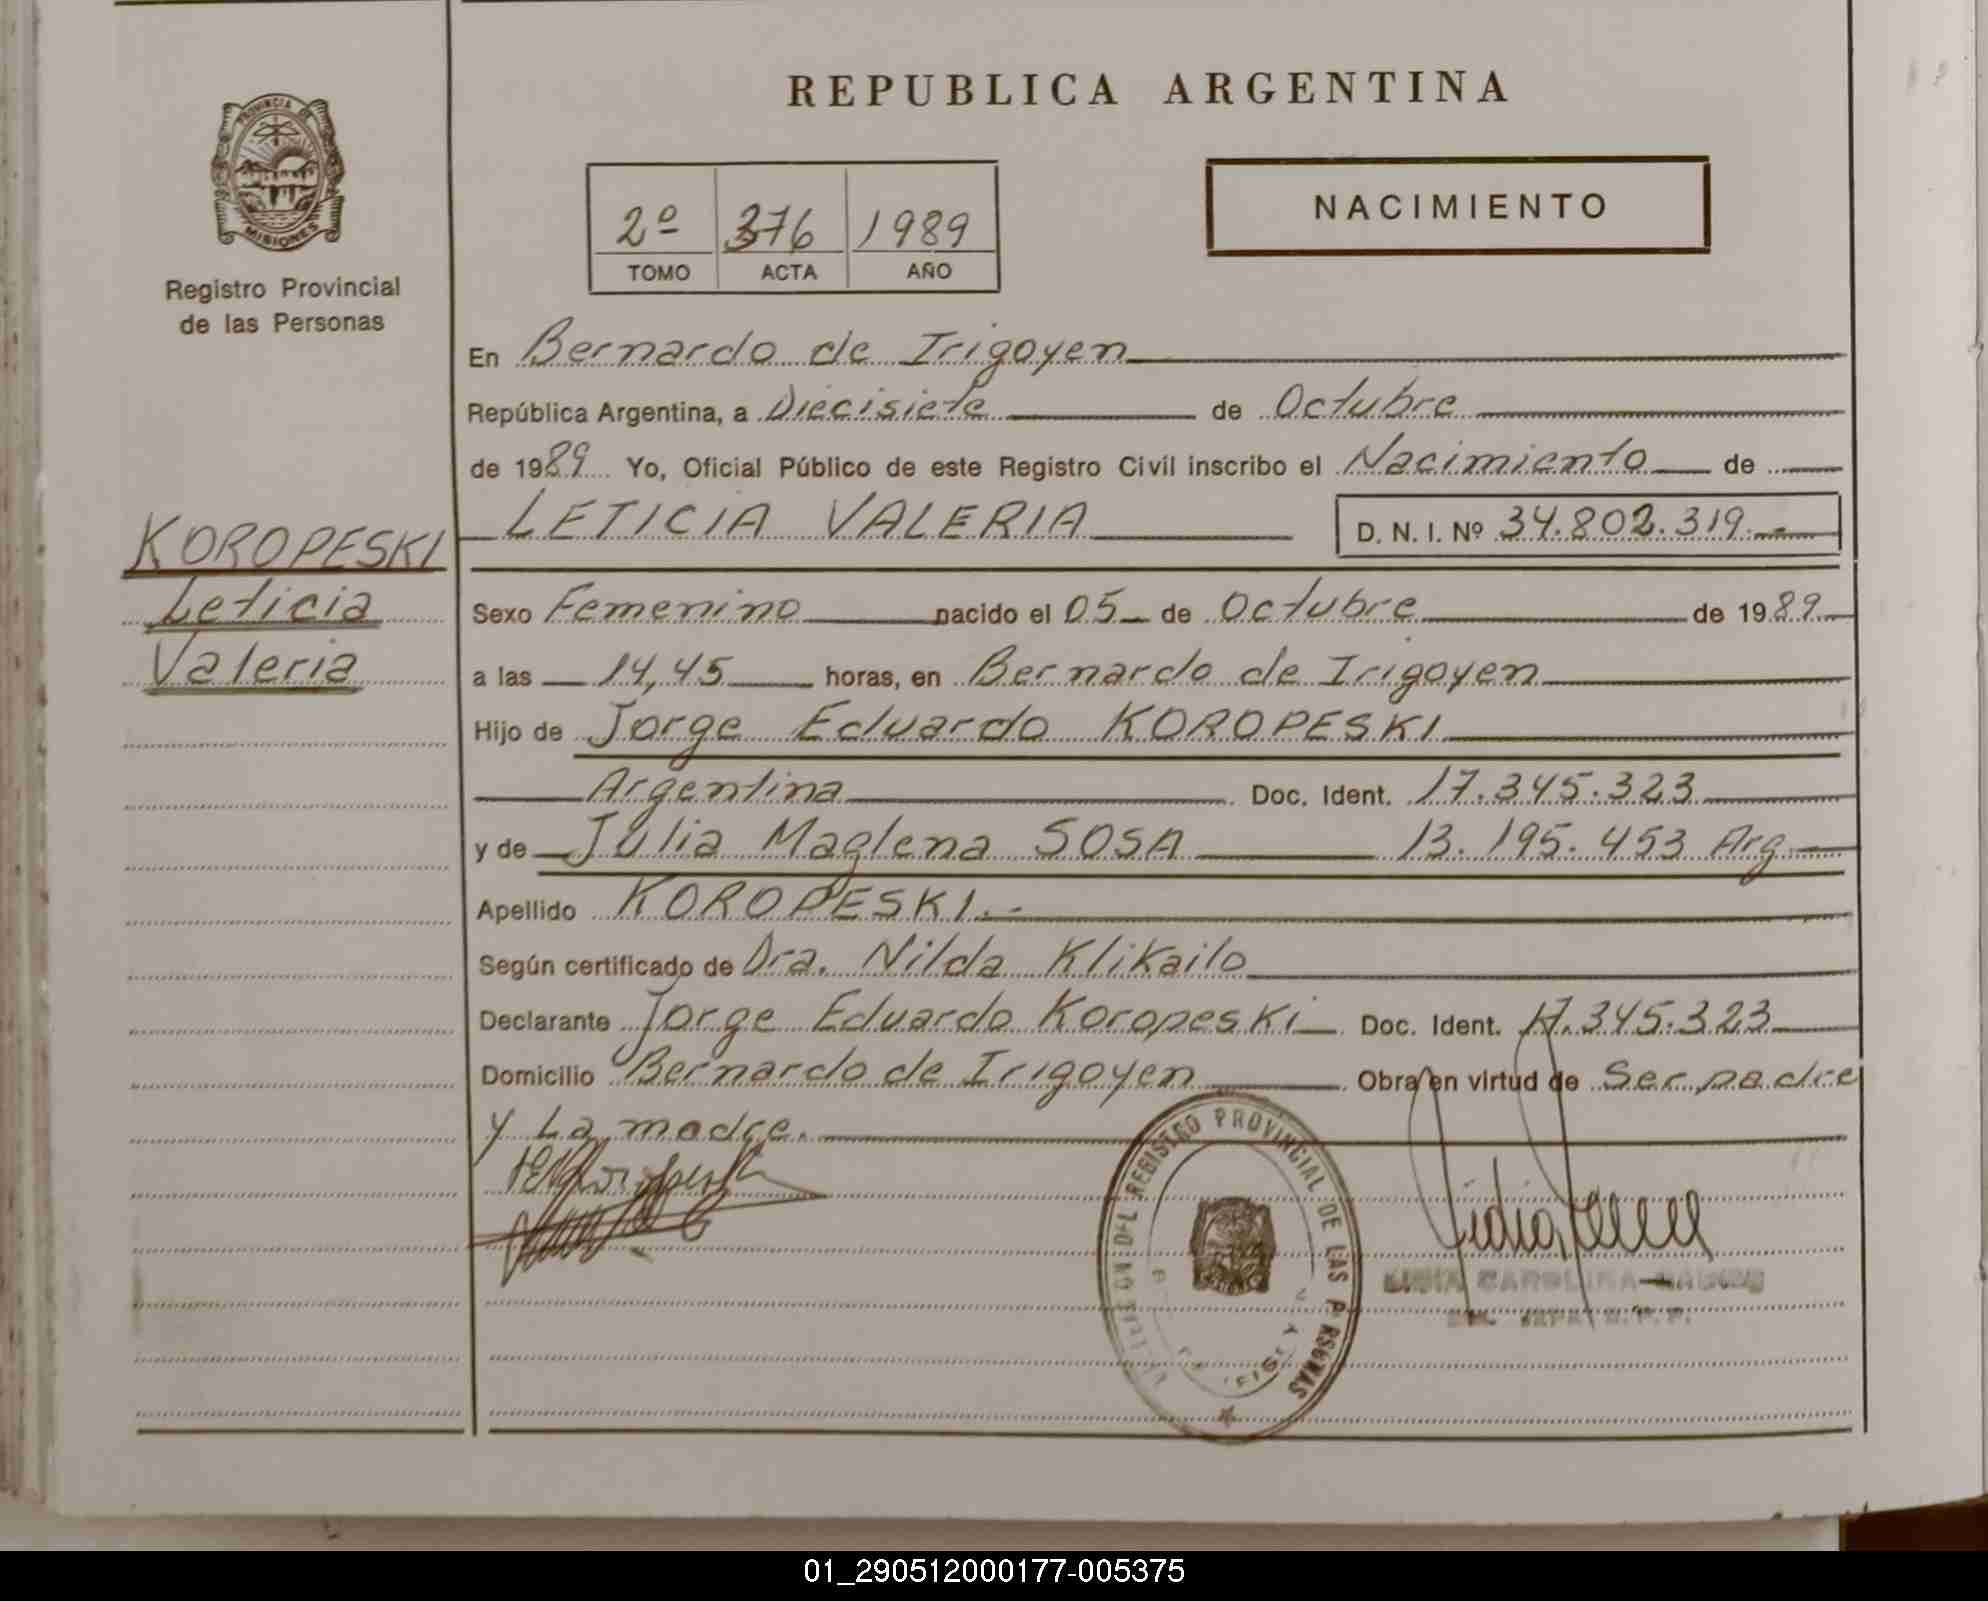 REPUBLICA ARGENTINA
PROVINCIA DE
MISIONES
Registro Provincial
de las Personas
2º 376 1989
TOMO ACTA AÑO
NACIMIENTO
En Bernardo de Irigoyen
República Argentina, a Diecisiete de Octubre
de 1989 Yo, Oficial Público de este Registro Civil inscribo el Nacimiento de
LETICIA VALERIA D. N. I. Nº 34.802.319.-
KOROPESKI
Leticia
Valeria
Sexo Femenino nacido el 05 de Octubre de 1989
a las 14,45 horas, en Bernardo de Irigoyen
Hijo de Jorge Eduardo KOROPESKI
Argentina Doc. Ident. 17.345.323
y de Julia Maglena SOSA 13.195.453 Arg
Apellido KOROPESKI.-
Según certificado de Dra. Nilda Klikailo
Declarante Jorge Eduardo Koropeski Doc. Ident. 17.345.323
Domicilio Bernardo de Irigoyen Obra en virtud de Ser padre
y La madre.
DEL REGISTRO PROVINCIAL DE LAS P RSONAS
LIDIA CAROLINA
01_290512000177-005375